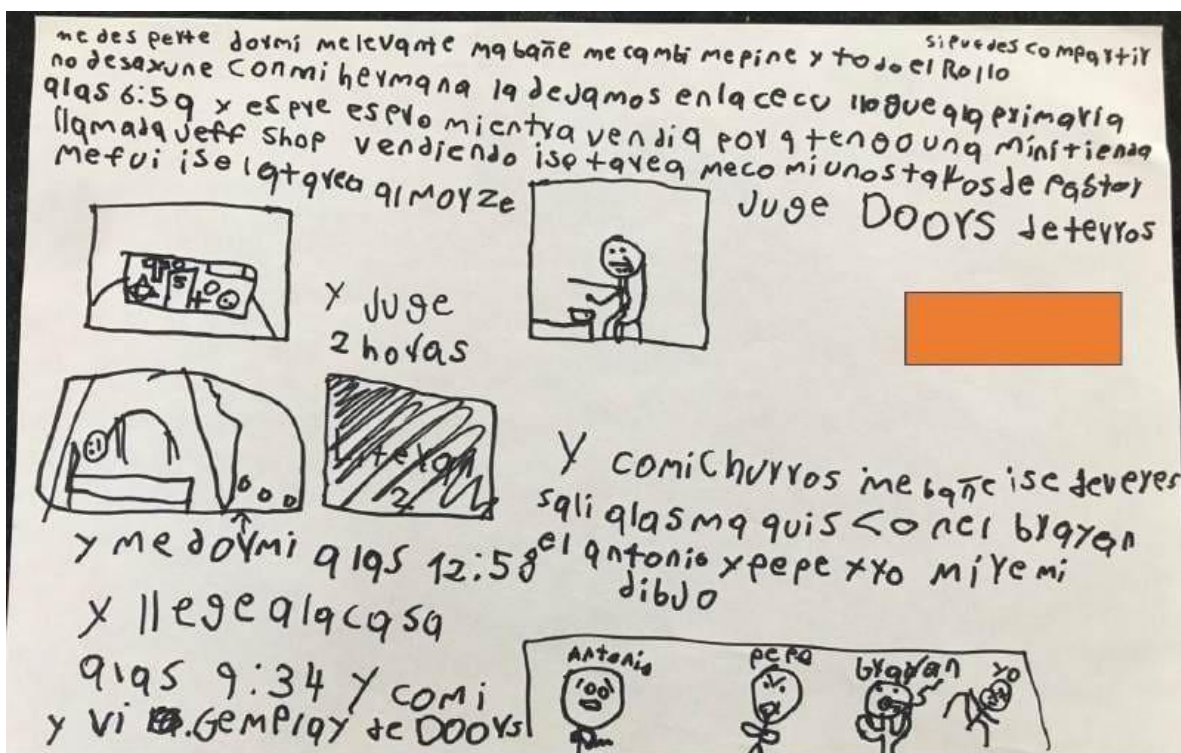 si puedes compartir
me des perte dormi melevante mabañe me cambi mepine y todo el Rollo
no desaxune conmi hermana la dejamos enlacecu llogue ala primaria
alas 6:59 y espre espero mientra vendia por q tengo una minitienda
llamada Jeff shop vendiendo ise tarea me comi unos takos de Pastor
mefui ise latarea almorze
Juge DOOYS deterros
y Juge
2 horas
y comi Churros ime bañe ise deveres
sali alas ma quis con el brayan
el antonio y pepe y yo mire mi
dibJo
y me dormi a las 12:58
y llege ala casa
alas 9:34 y comi
y vi Gemplay de DOOYS
Antonio
pepe
brayan
yo